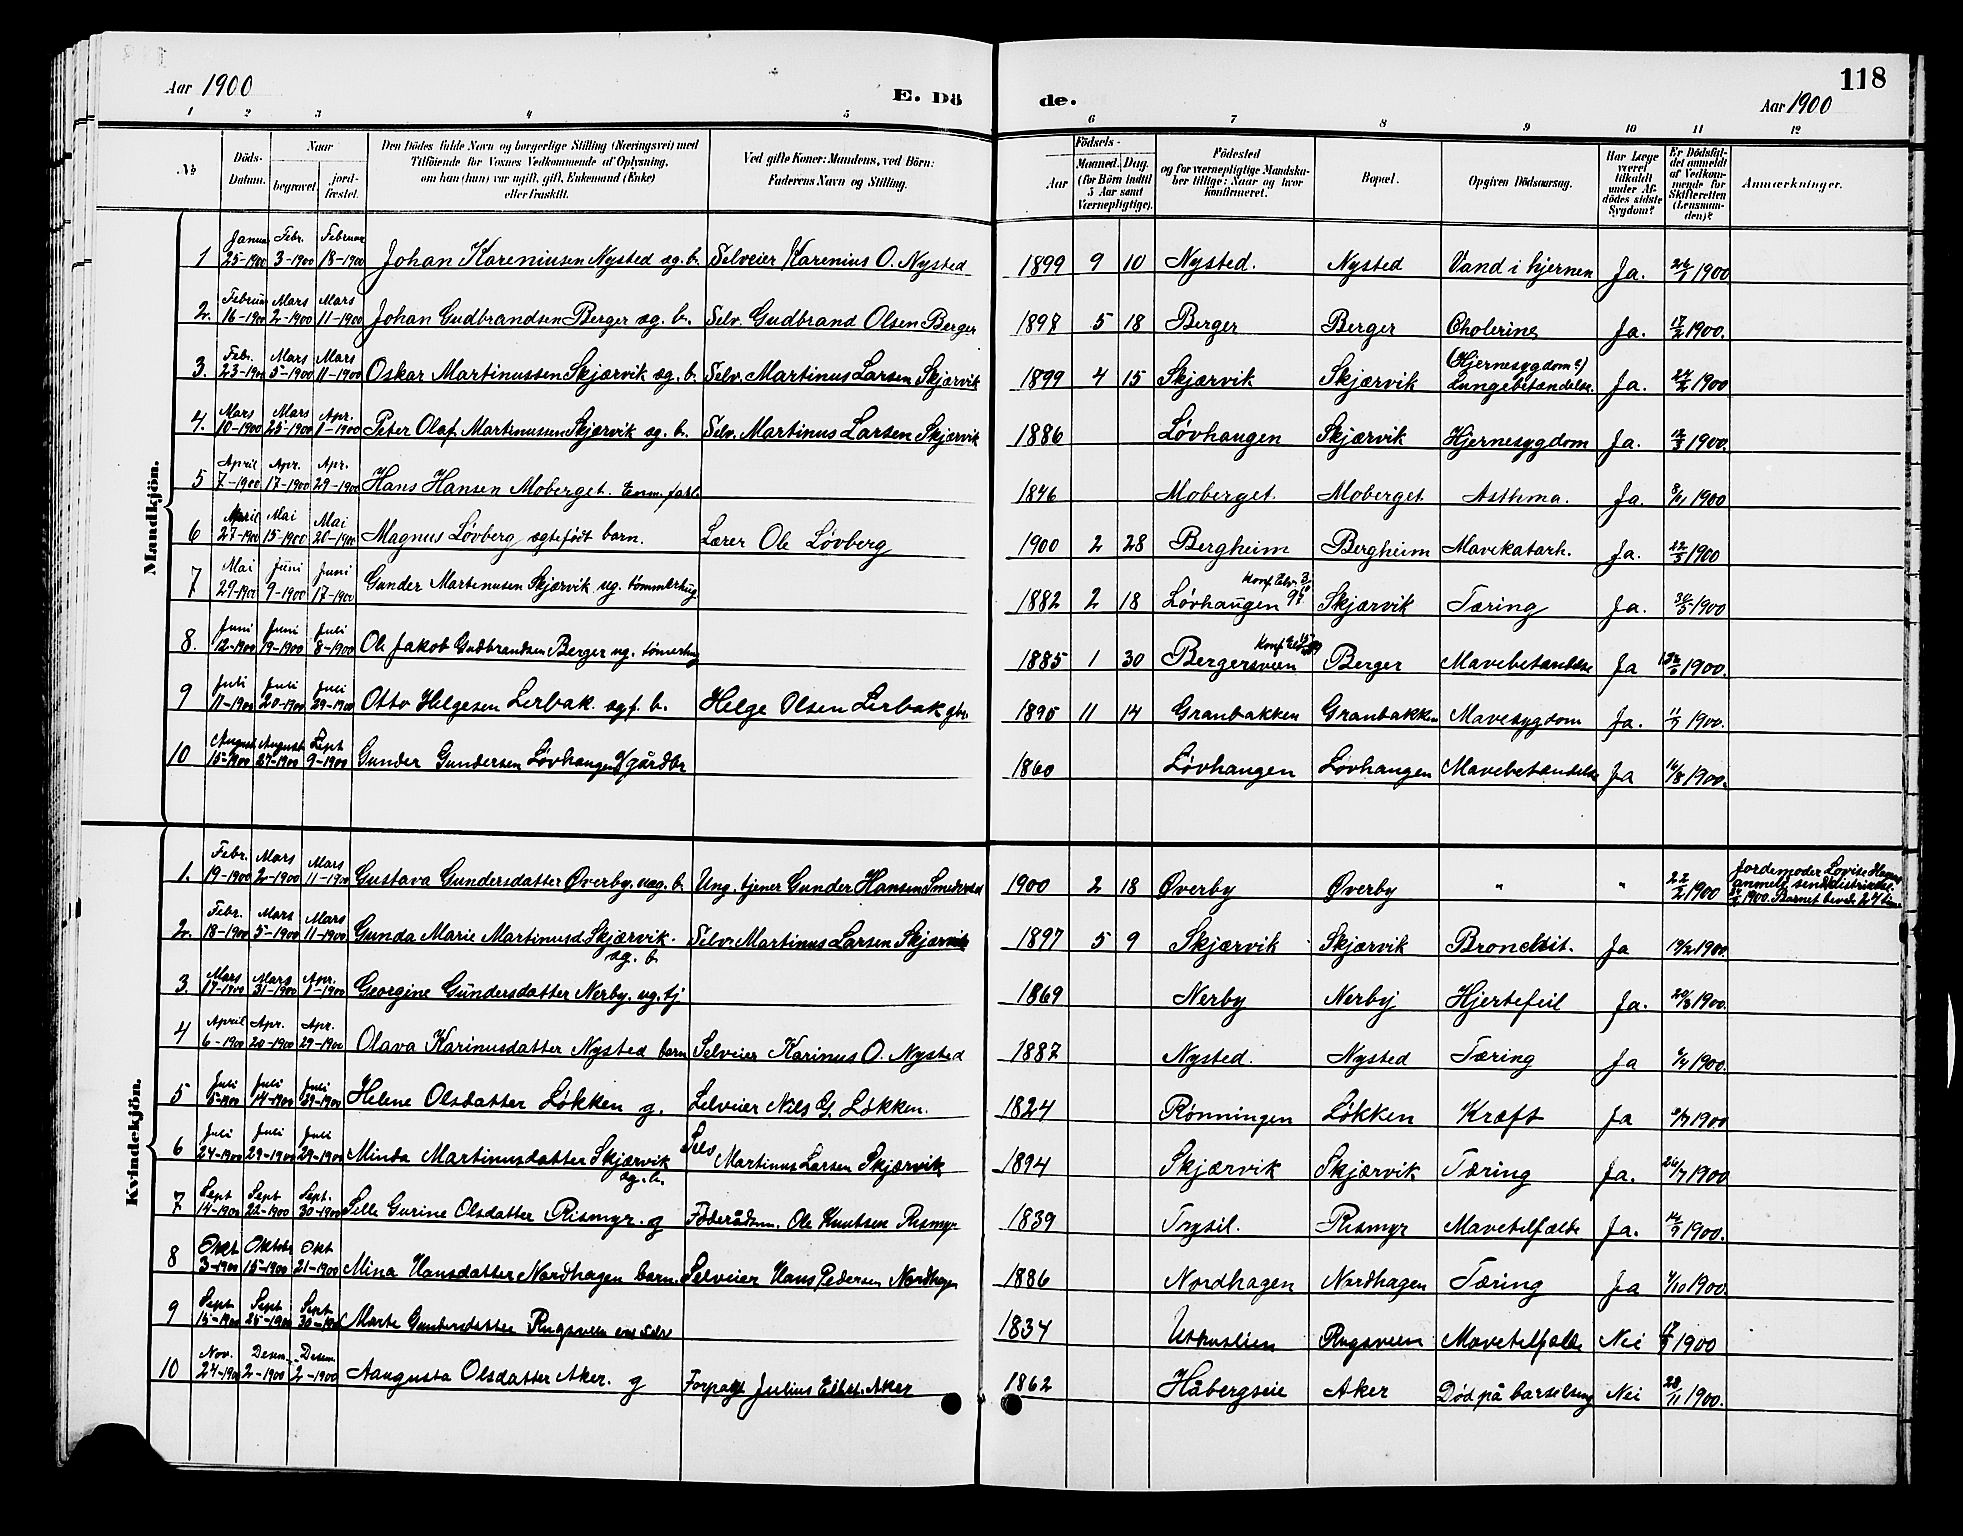 118
Aar 1900
E. Dö de.
Aar 1900
1 2 3 4 5 6 7 8 9 10 11 12
№
Döds-Datum.
Naar
begravet.
jord-fæstet.
Den Dödes fulde Navn og borgerlige Stilling (Næringsvei) med
Tilföiende for Voxnes Vedkommende af Oplysning,
om han (hun) var ugift, gift, Enkemand (Enke)
eller fraskilt.
Ved gifte Koner: Mandens, ved Börn:
Faderens Navn og Stilling.
Födsels-
Aar
Maaned. Dag.
(for Börn indtil
5 Aar samt
Værnepligtige).
Födested
og for værnepligtige Mandska-
ber tillige: Naar og hvor
konfirmeret.
Bopæl.
Opgiven Dödsaarsag.
Har Læge
været
tilkaldt
under Af-
dödes sidste
Sygdom?
Er Dödsfal-
det anmeldt
af Vedkom-
mende for
Skifteretten
(Lensman-
den)?
Anmærkninger.
Mandkjön.
1 Januar 25-1900 Febr. 3-1900 Februar 18-1900 Johan Kareniusen Nysted æg. b. Selveier Karenius O. Nysted 1899 9 10 Nysted. Nysted Vand i hjernen Ja. 26/1 1900
2. Februar 16-1900 Mars 2-1900 Mars 11-1900 Johan Gudbrandsen Berger æg. b. Selv. Gudbrand Olsen Berger 1898 5 18 Berger Berger Cholerine Ja. 17/2 1900.
3. Febr. 23-1900 Mars 5-1900 Mars 11-1900 Oskar Martinussen Skjærvik æg. b. Selv. Martinus Larsen Skjærvik 1899 4 15 Skjærvik Skjærvik (Hjernesygdom?) Lungebetændelse. Ja. 24/2 1900
4. Mars 10-1900 Mars 25-1900 Apr. 1-1900 Peter Olaf Martinussen Skjærvik æg. b. Selv. Martinus Larsen Skjærvik 1886 Løvhaugen Skjærvik Hjernesygdom Ja. 12/3 1900.
5 April 7-1900 Apr. 17-1900 Apr. 29-1900 Hans Hansen Moberget. Enm. 1846 Moberget. Moberget Asthma. Ja. 1900
6 April 27-1900 Mai 15-1900 Mai 20-1900 Magnus Løvberg ægtefødt barn. Lærer Ole Løvberg 1900 2 28 Bergheim Bergheim Mavekatarh. Ja. 1900
7 Mai 29-1900 Juni 9-1900 Juni 17-1900 Gunder Martinusen Skjærvik ug. tømmerhug 1882 2 18 Løvhaugen Konf. Skjærvik Tæring Ja. 1900
8. Juni 12-1900 Juni 19-1900 Juli 8-1900 Ole Jakob Gudbrandsen Berger ug. tømerhug 1885 1 30 Bergersveen Konf. Berger Mavebetændelse Ja 1900.
9 Juli 11-1900 Juli 20-1900 Juli 29-1900 Otto Helgesen Lerbak ægf. b. Helge Olsen Lerbak gbr. 1895 11 14 Granbakken Granbakken Mavesygdom Ja. 1900.
10 August 15-1900 August 27-1900 Sept 9-1900 Gunder Gundersen Løvhaugen g gårdbr 1860 Løvhaugen Løvhaugen Mavebetændelse Ja 16/8 1900.
Kvindekjön.
1. Febr. 19-1900 Mars 2-1900 Mars 11-1900 Gustava Gundersdatter Øverby. uæg. b. Ung. tjener Gunder Hansen 1900 2 18 Øverby Øverby " " 22/2 1900 Jordemoder Lovise anmeldt 1900. Barnet levede
2. Febr. 18-1900 Mars 5-1900 Mars 11-1900 Gunda Marie Martinusd. Skjærvik. æg. b. Selv. Martinus Larsen Skjærvik 1897 5 9 Skjærvik Skjærvik Bronchit. Ja 19/2 1900.
3. Mars 17-1900 Mars 31-1900 Apr. 1-1900 Georgine Gundersdatter Nerby. ug. tj 1869 Nerby Nerby Hjertefeil Ja. 20/3 1900.
4 April 6-1900 Apr. 20-1900 Apr. 29-1900 Olava Karinusdatter Nysted barn Selveier Karinus O. Nysted 1887 Nysted. Nysted Tæring Ja 1900.
5 Juli 5-1900 Juli 14-1900 Juli 29-1900 Helene Olsdatter Løkken g. Selveier Nils G. Løkken. 1824 Rønningen Løkken Kræft Ja 1900
6 Juli 24-1900 Juli 29-1900 Juli 29-1900 Minda Martinusdatter Skjærvik æg. b. Selv Martinus Larsen Skjærvik 1894 Skjærvik Skjærvik Tæring Ja. 26/7 1900
7 Sept 14-1900 Sept 22-1900 Sept. 30-1900 Sille Gurine Olsdatter Rismyr. g Föderådsm. Ole Knutsen Rismyr 1839 Trysil. Rismyr Mavetilfælde Ja. 1900.
8 Okt 3-1900 Oktober 15-1900 Okt 21-1900 Mina Hansdatter Nordhagen barn. Selveier Hans Pedersen Nordhagen 1886 Nordhagen Nordhagen Tæring Ja 4/10 1900.
9 Sept 15-1900 Sept 25-1900 Sept 30-1900 Marte Gundersdatter Rugsveen 1834 Rugsveen Mavetilfælde Nei 1900
10 Nov. 24-1900 Desem. 2-1900 Desem. 2-1900 Aaugusta Olsdatter Aker. g Forpagt Julius Aker 1862 Håbergseie Aker Død på barselseng Nei 28/11 1900.